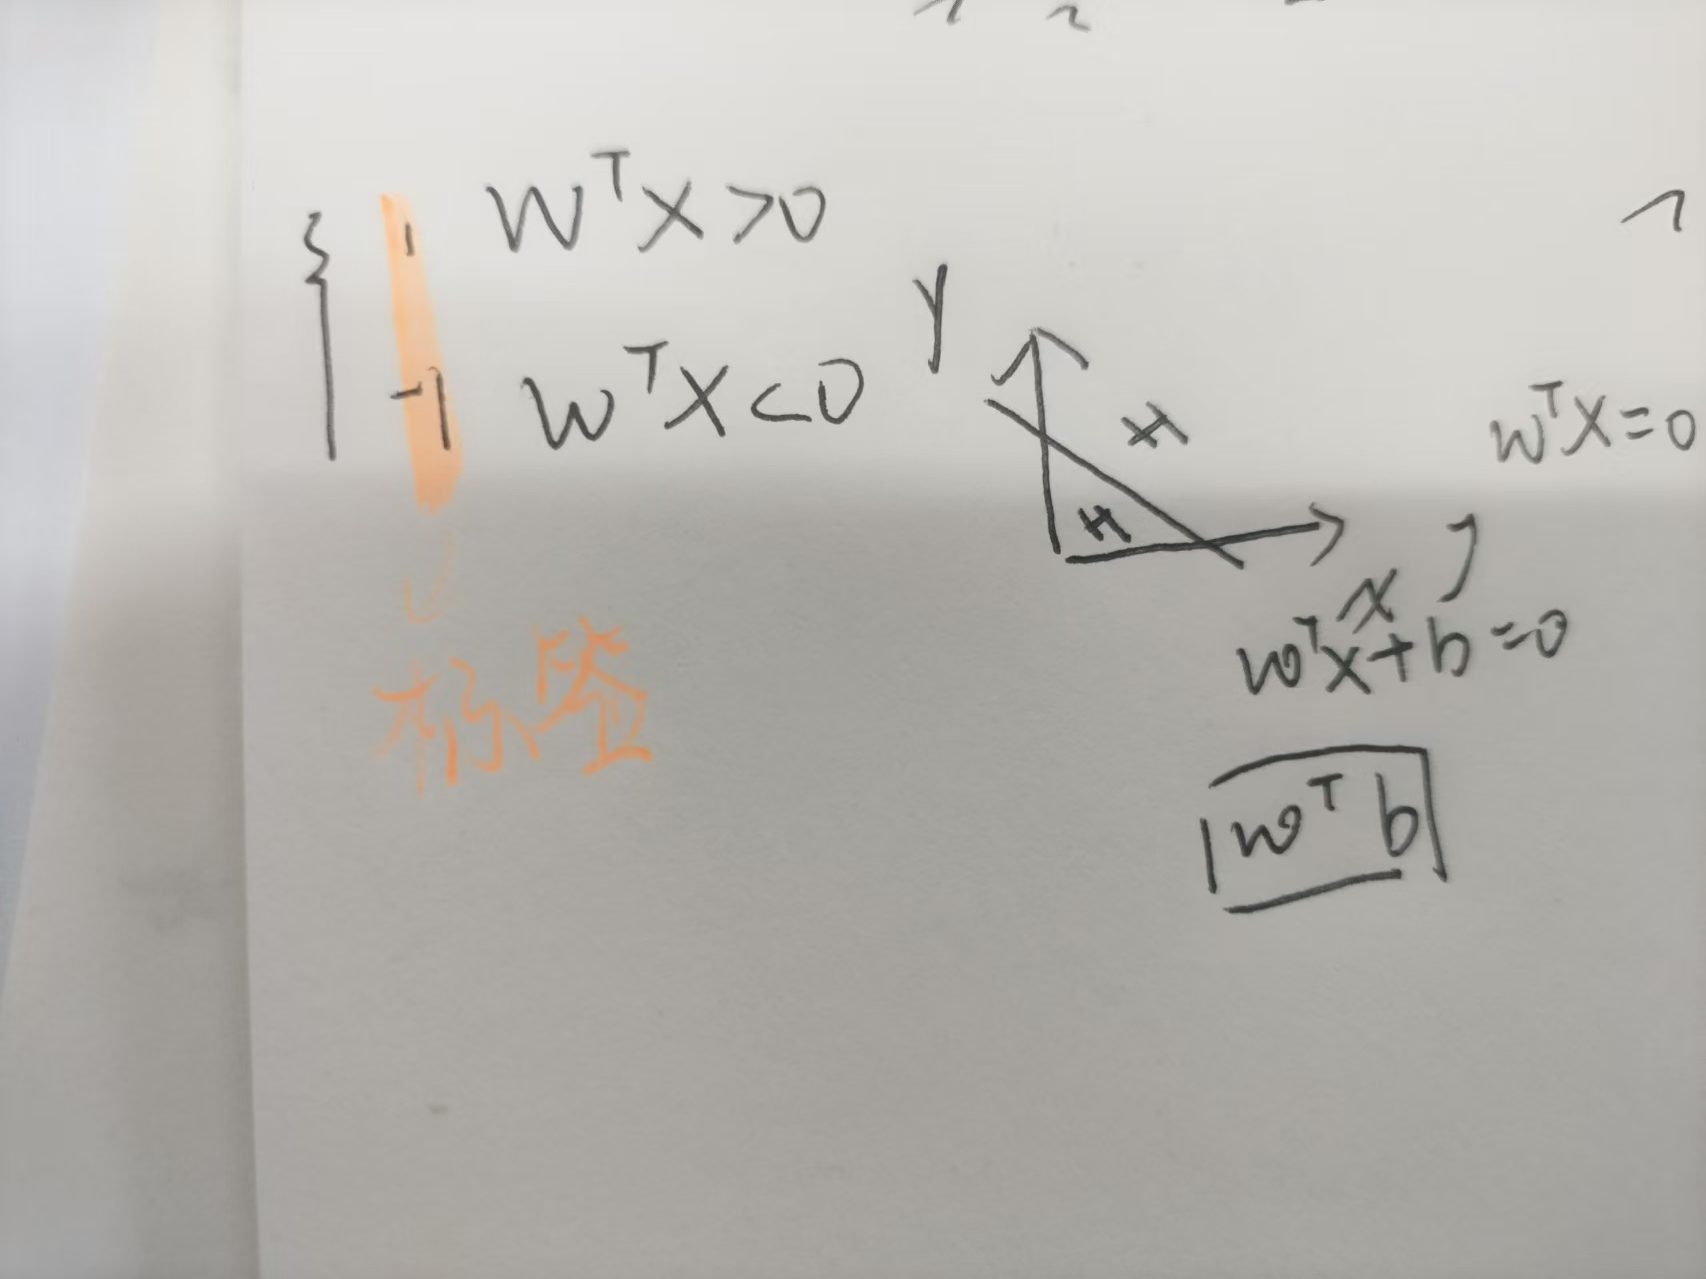 1 wᵀx>0
-1 wᵀx<0
标签
y
H
H
x
wᵀx=0
wᵀx+b=0
wᵀ b